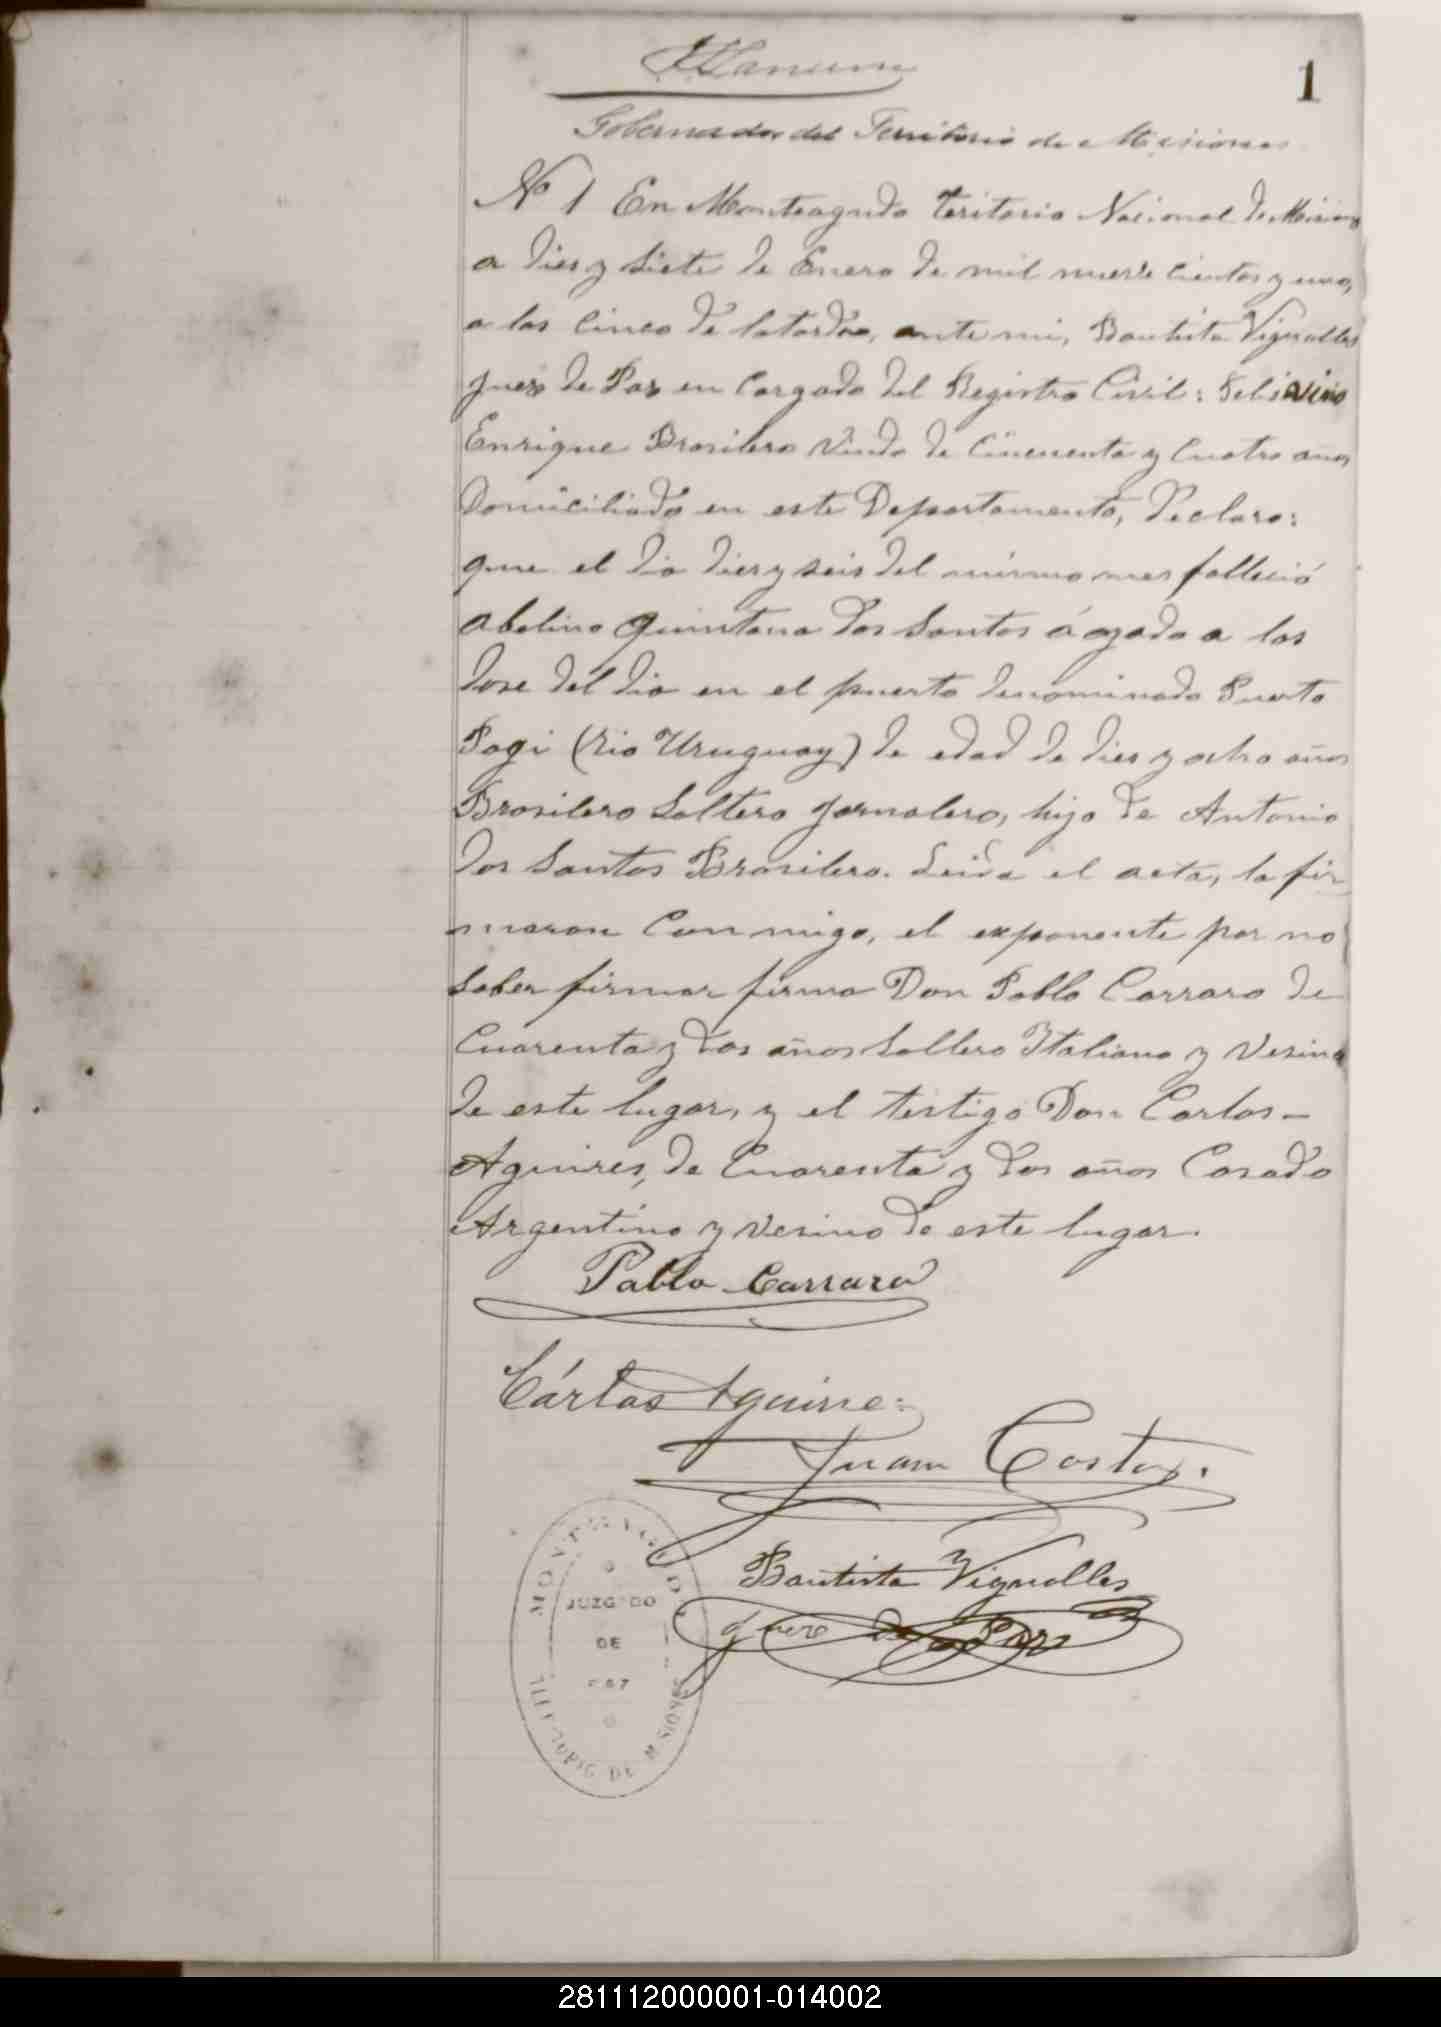 1
Gobernador del Territorio de Misiones
Nº 1 En Monteagudo Teritorio Nacional de Misiones
a dies y siete de Enero de mil nueve cientos y uno,
a las cinco de la tarde, ante mi, Bautista Vignolles
Juez de Paz en Cargado del Registro Civil:
Enrique Brasilero viudo de Cincuenta y Cuatro años
Domiciliado en este Departamento, Declaro:
que el dia dies y seis del mismo mes fallecio
Abelino Quintana Dos Santos á ogado a las
dose del dia en el puerto denominado Puerto
Pagi (rio Uruguay) de edad de dies y ocho años
Brasilero Soltero Jornalero, hijo de Antonio
dos Santos Brasilero. Leida el acta, la fir
maron Con migo, el exponente por no
saber firmar firma Don Pablo Carraro de
Cuarenta y dos años Soltero Italiano y Vesino
de este lugar, y el testigo Don Carlos -
Aguires, de Cuarenta y dos años Casado
Argentino y vesino de este lugar.
Pablo Carraro
Cárlos Aguirre
Juan Costa.
Bautista Vignolles
Juez de Paz
MONTEAGUDO
JUZGADO
DE
PAZ
TERRITORIO DE MISIONES
281112000001-014002